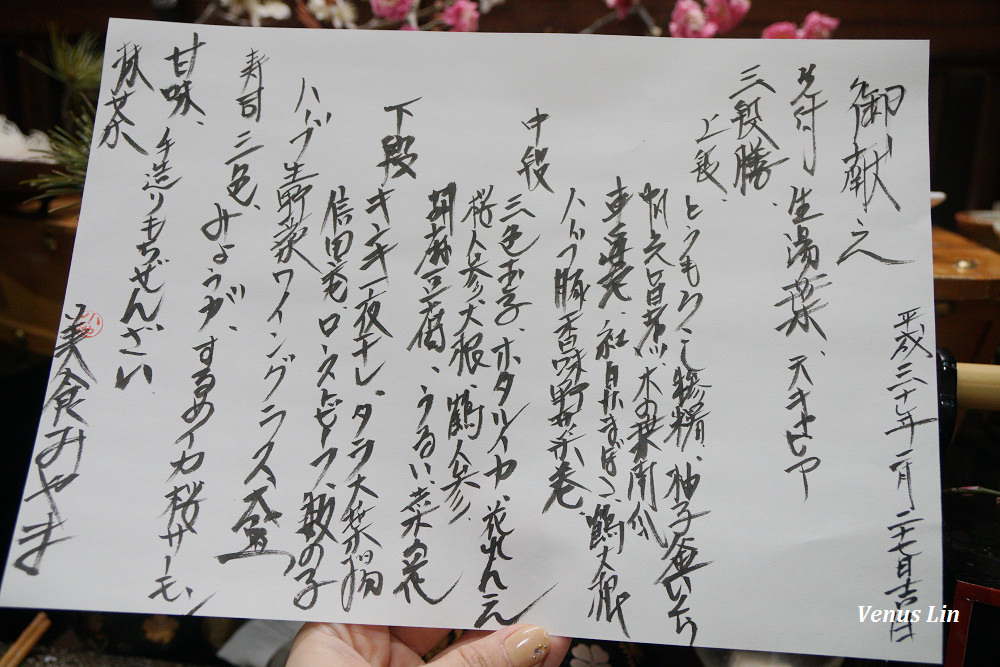 御献立
平成三十年二月二十七日吉日
先付 生湯葉、天キャビア
三段勝、
上段、
とうもろこし 、柚子釜いくら
帆立旨煮、木の葉南瓜
車海老、社日たまご、鶴大根
ハーブ豚香味野菜巻、
中段
三色玉子 ホタルイカ、花れんこん
桜人参、大根、鶴人参、
胡麻豆腐、うるい、菜の花
下段
キンキ一夜干し、タラ大葉揚
信田巻、ローストビーフ、数の子
ハーブ生野菜ワイングラス盛
寿司 三色、みょうが、するめイカ 桜サーモン
甘味、手造りもちぜんざい
抹茶
美食みやま
Venus Lin